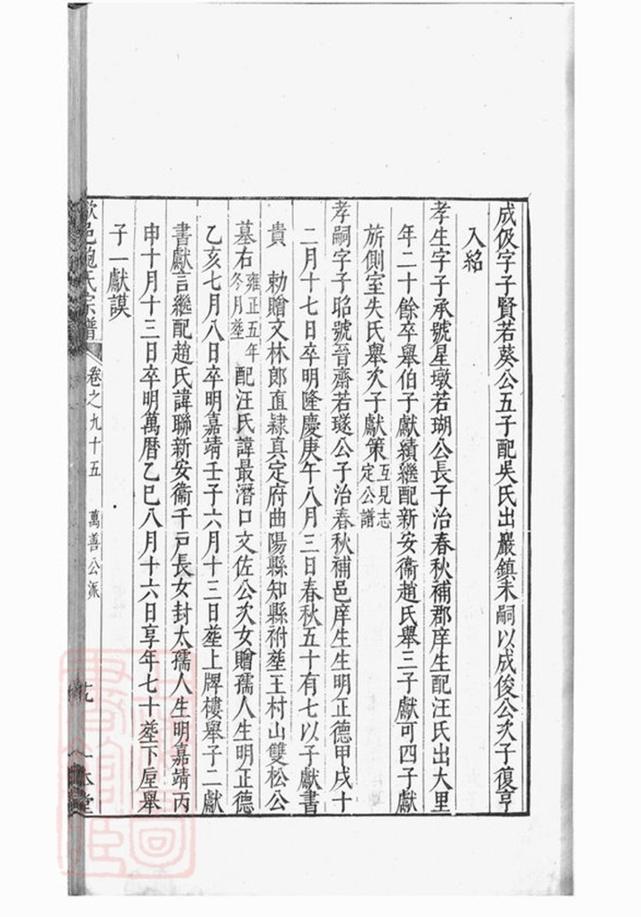 成伋字子賢若葵公五子配吳氏出巖鎮未嗣以成俊公次子復亨
入紹
孝生字子承號星墩若瑚公長子治春秋補郡庠生配汪氏出大里
年二十餘卒舉伯子獻績繼配新安衞趙氏舉三子獻可四子獻
旂側室失氏舉次子獻策互見志定公譜
孝嗣字子昭號晉齋若璲公子治春秋補邑庠生生明正德甲戌十
二月十七日卒明隆慶庚午八月三日春秋五十有七以子獻書
貴 勅贈文林郎直隸真定府曲陽縣知縣祔塟王村山雙松公
墓右雍正五年冬月塟配汪氏諱最潛口文佐公次女贈孺人生明正德
乙亥七月八日卒明嘉靖壬子六月十三日塟上牌樓舉子二獻
書獻言繼配趙氏諱聯新安衞千戸長女封太孺人生明嘉靖丙
申十月十三日卒明萬曆乙巳八月十六日享年七十塟下屋舉
子一獻謨
歙邑鮑氏宗譜 卷之九十五 萬善公派 一本堂